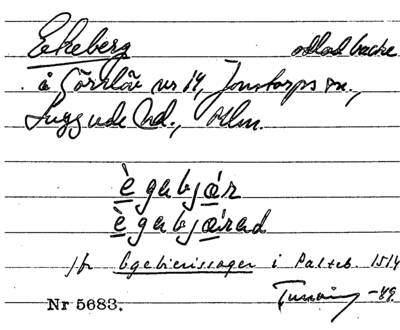 Ekeberg odlad backe
å Görslöv nr 14, Jonstorps sn.,
Luggude hd., Mlm.
è gabjær
è gabjærad
jfr Egebierissager i Pal+eb. 1514
Nr 5683. -49